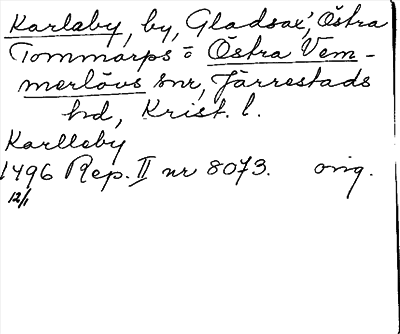 Karlaby, by, Gladsax, Östra
Tommarps o Östra Vem-
merlövs snr, Järrestads
hd, Krist. l.
Karlleby
1496 Rep. II nr 8073. orig.
12/1